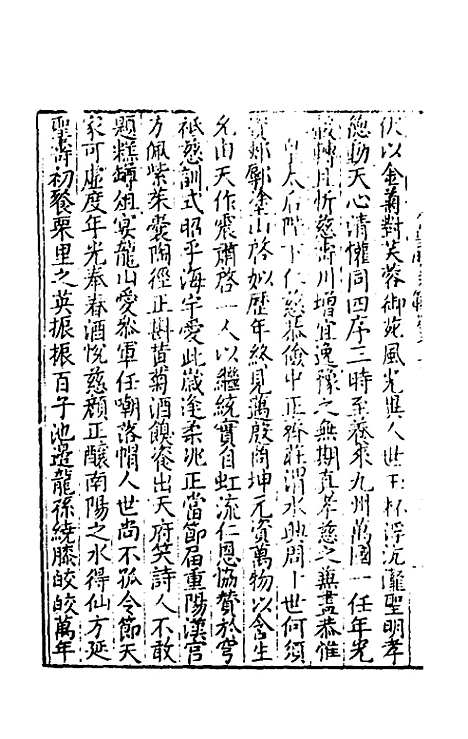 伏以金菊對芙蓉御苑風光與人世玉杯浮沆瀣聖明孝
德動天心清懽同四序三時至養來九州萬國一任年光
轉且忻慈壽川增宜逸豫之無期真孝慈之無盡恭惟
皇太后陛下仁慈恭儉中正齊莊渭水興周卜世何須
郟鄏塗山啓姒歷年終見萬殷啇坤元資萬物以含生
允由天作震肅啓一人以繼統實自虹流仁恩恊贊於穹
祇慈訓式昭乎海宇愛此嵗逢柔兆正當節届重陽漢宮
方佩紫茱囊陶徑正斟黄菊酒餻出天府笑詩人不敢
題糕罇俎宴龍山愛叅軍任嘲落帽人世尚不孤令節天
家可虚度年光奉春酒悅慈顔正釀南陽之水得仙方延
聖壽初餐栗里之英振振百子池邊龍孫繞膝皎皎萬年